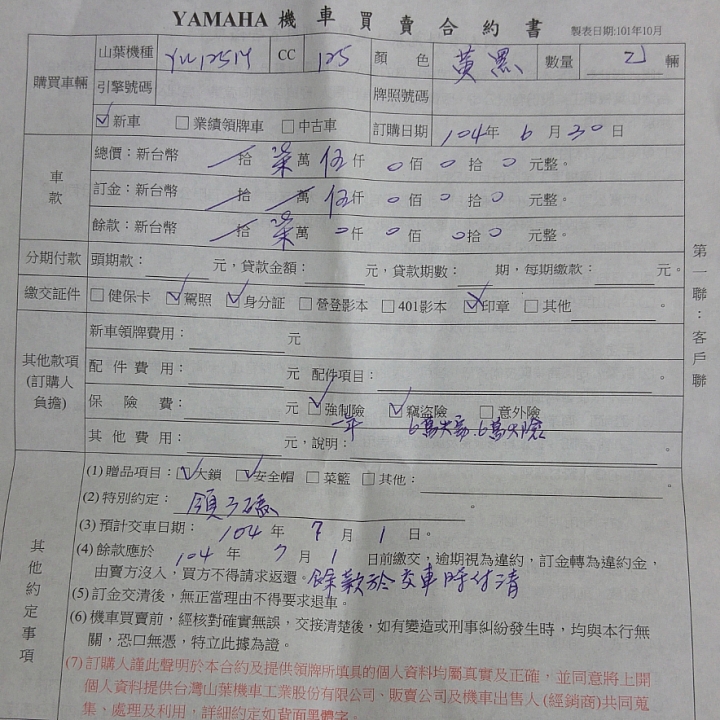 YAMAHA 機車買賣合約書 製表日期:101年10月
購買車輛 山葉機種 CC 125 顏色 黃黑 數量 輛
引擎號碼 牌照號碼
☑新車 □業績領牌車 □中古車 訂購日期 104年 6月30日
車款 總價：新台幣 拾柒萬伍仟0佰0拾0元整。
訂金：新台幣 拾 萬伍仟0佰0拾0元整。
餘款：新台幣 拾柒萬0仟0佰0拾0元整。
分期付款 頭期款： 元，貸款金額： 元，貸款期數： 期，每期繳款： 元。
繳交証件 □健保卡 ☑駕照 ☑身分証 □營登影本 □401影本 ☑印章 □其他
其他款項(訂購人負擔) 新車領牌費用： 元
配件費用： 元 配件項目： 。
保險費： 元 ☑強制險 ☑竊盜險 □意外險
一年
其他費用： 元，說明： 。
其他約定事項
(1) 贈品項目：☑大鎖 ☑安全帽 □菜籃 □其他： 。
(2) 特別約定： 。
(3) 預計交車日期： 104年 7月 1日。
(4) 餘款應於 104年 7月 1日前繳交，逾期視為違約，訂金轉為違約金，
由賣方沒入，買方不得請求返還。餘款於交車時付清
(5) 訂金交清後，無正當理由不得要求退車。
(6) 機車買賣前，經核對確實無誤，交接清楚後，如有變造或刑事糾紛發生時，均與本行無
關，恐口無憑，特立此據為證。
(7) 訂購人謹此聲明於本合約及提供領牌所填具的個人資料均屬真實及正確，並同意將上開
個人資料提供台灣山葉機車工業股份有限公司、販賣公司及機車出售人(經銷商)共同蒐
集、處理及利用，詳細約定如背面黑體字。
第一聯：客戶聯